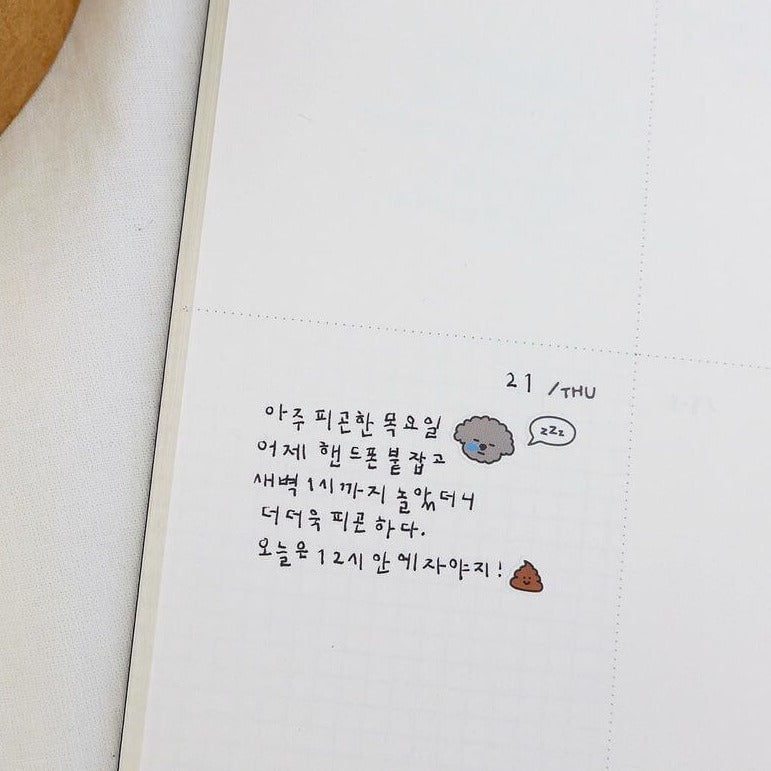 21 /THU
아주 피곤한 목요일
zzz
어제 핸드폰 붙잡고
새벽 1시까지 놀았더니
더더욱 피곤하다.
오늘은 12시 안에 자야지!